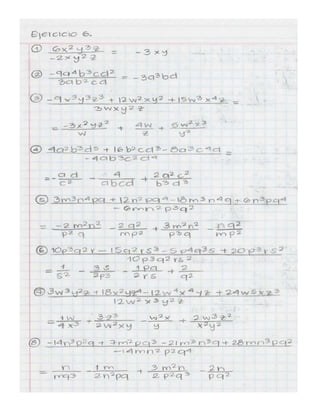 Ejercicio 6.
① 6x²y³z / -2xy²z = -3xy
② -9a⁴b³cd² / 3ab²cd = -3a³bd
③ -9x³y³z³ + 12w²xy² + 15w³x⁴z / 3wxy²z =
= -3x²yz² / w + 4w / z + 5w²x³ / y²
④ 4a²b³d⁵ + 16b²cd³ - 8a³c⁴d / -4ab³c²d⁴ =
= -ad / c² - 4 / abcd + 2a²c² / b³d³
⑤ 3m³n⁴pq + 12n²pq⁴ - 18m³n⁴q + 6n³pq⁴ / -6mn²p³q²
= -2m²n² / p²q - 2q² / mp² + 3m²n² / p³q - nq² / mp²
⑥ 10p³q²r - 15q²rs³ - 5p⁴q³s + 20p³rs² / 10p³q²rs²
= 1 / s² - 3s / 2p³ - 1pq / 2rs + 2 / q²
⑦ 3w³y²z + 18x²yz⁴ - 12w⁴x⁴yz + 24w⁵xz³ / 12w²x³y²z
= 1w / 4x³ + 3z³ / 2w²xy - w²x / y + 2w³z² / x²y²
⑧ -14n³p²q + 7m²pq³ - 21m³n³q + 28mn³pq² / -14mn²p²q⁴
= n / mq³ - 1m / 2n²pq + 3m²n / 2p²q³ - 2n / pq²